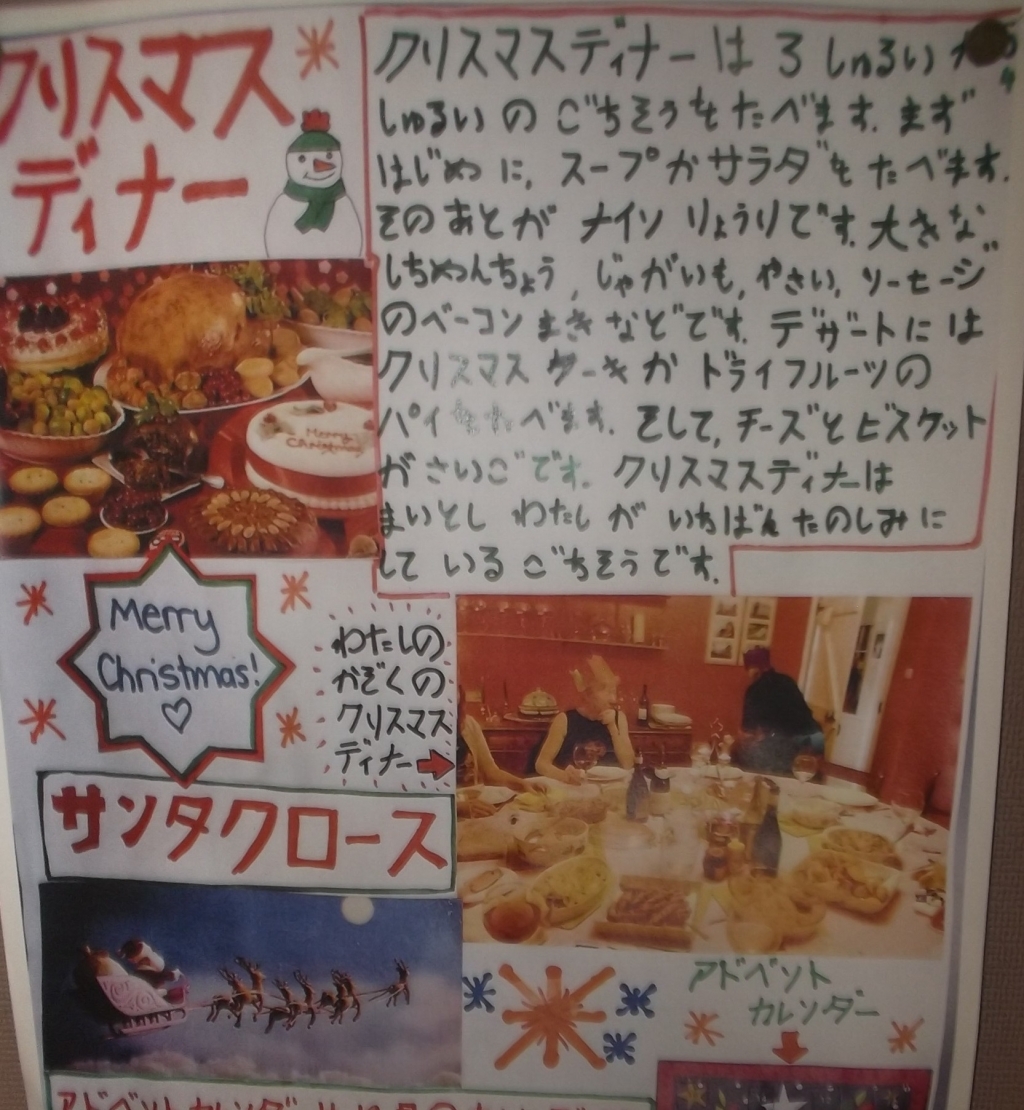 クリスマス
ディナー
クリスマスディナーは3しゅるいか
しゅるいのごちそうをたべます。まず
はじめに、スープかサラダをたべます。
そのあとがナイソりょうりです。大きな
しちめんちょう、じゃがいも、やさい、ソーセージ
のベーコンまきなどです。デザートには
クリスマスケーキかドライフルーツの
パイをたべます。そして、チーズとビスケット
がさいごです。クリスマスディナーは
まいとしわたしがいちばんたのしみに
しているごちそうです。
Merry
Christmas
Merry
Christmas!
わたしの
かぞくの
クリスマス
ディナー
サンタクロース
アドベント
カレンダー
アドベントカレンダー